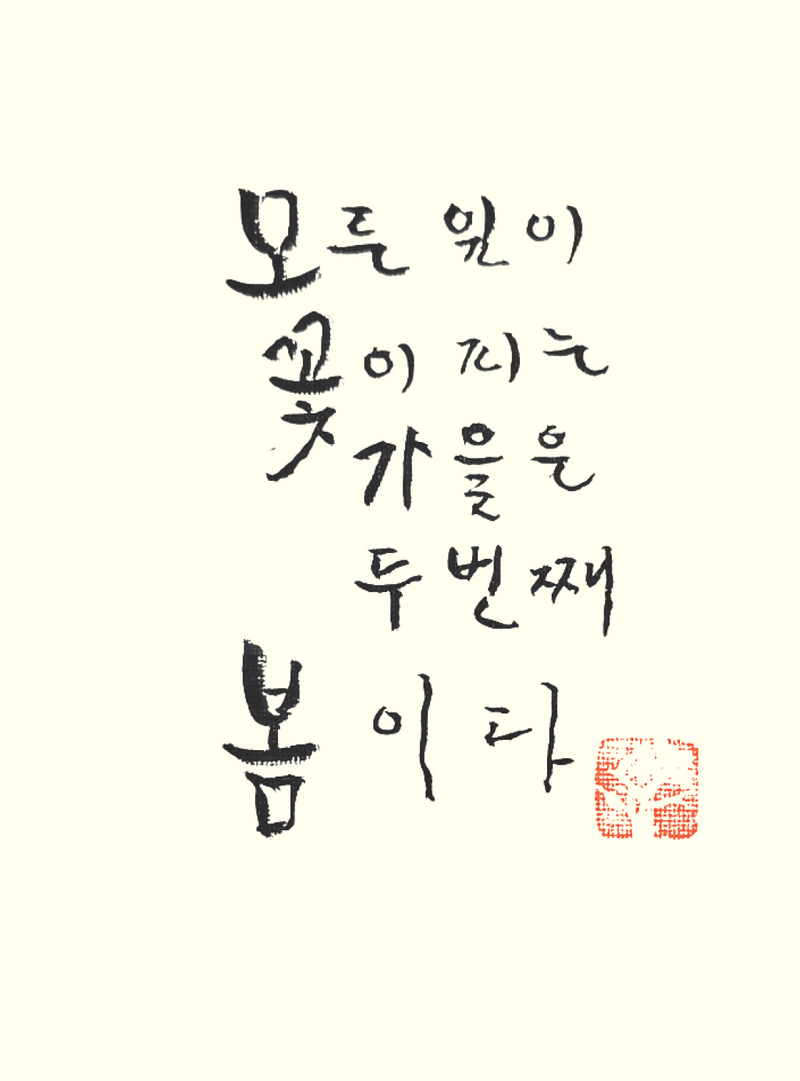 모든 잎이
꽃이 지는
가을은
두번째
봄이다